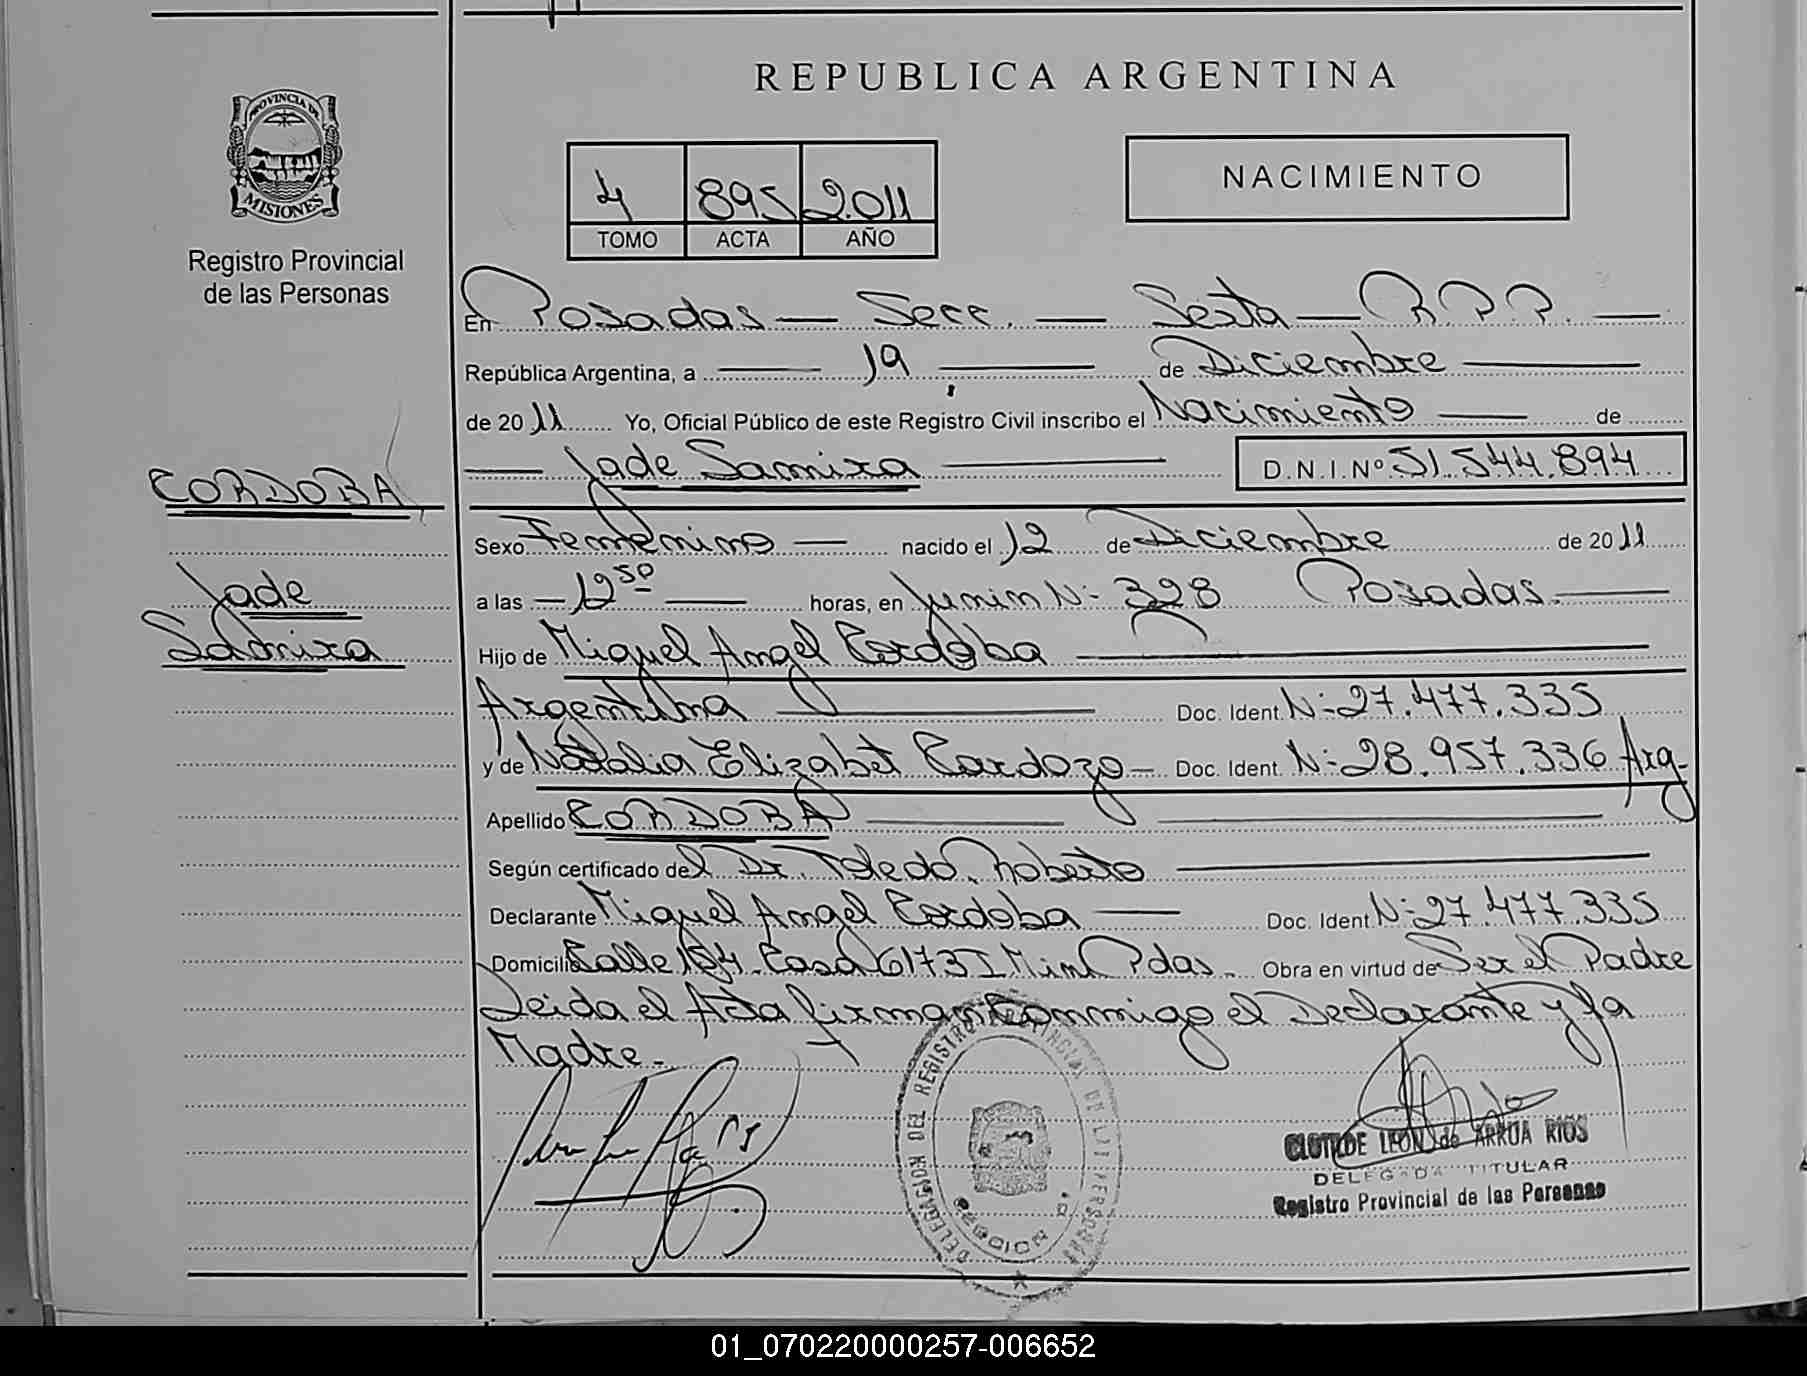 REPUBLICA ARGENTINA
PROVINCIA DE
MISIONES
Registro Provincial
de las Personas
4 895 2.011
TOMO ACTA AÑO
NACIMIENTO
En Posadas — Secc. — Sexta — R.P.P. —
República Argentina, a — 19 — de Diciembre —
de 2011 Yo, Oficial Público de este Registro Civil inscribo el Nacimiento — de
— Jade Samira — D.N.I. Nº 51.544.894
CORDOBA
Jade
Samira
Sexo Femenino — nacido el 12 de Diciembre de 2011
a las — 12 50 — horas, en Junin N- 328 Posadas. —
Hijo de Miguel Angel Cordoba —
Argentina — Doc. Ident. N- 27.477.335
y de Natalia Elizabet Cardozo — Doc. Ident. N- 28.957.336 Arg-
Apellido CORDOBA —
Según certificado del Dr. Toledo, Roberto —
Declarante Miguel Angel Cordoba — Doc. Ident. N- 27.477.335
Domicilio Calle 194. Casa 6173 I Mini Pdas. Obra en virtud de Ser el Padre
Leida el Acta firman conmigo el Declarante y la
Madre.
DELEGACION DEL REGISTRO PROVINCIAL DE LAS PERSONAS
CLOTILDE LEON de ARRUA RIOS
DELEGADA TITULAR
Registro Provincial de las Personas
01_070220000257-006652